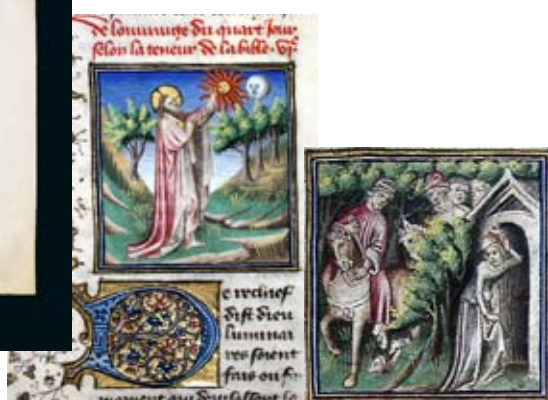 de louurage du quart Jour
selon la teneur de la bible. vi͛.
e rechief
dist dieu
luminai
res soient
fais ou fir
mament qui